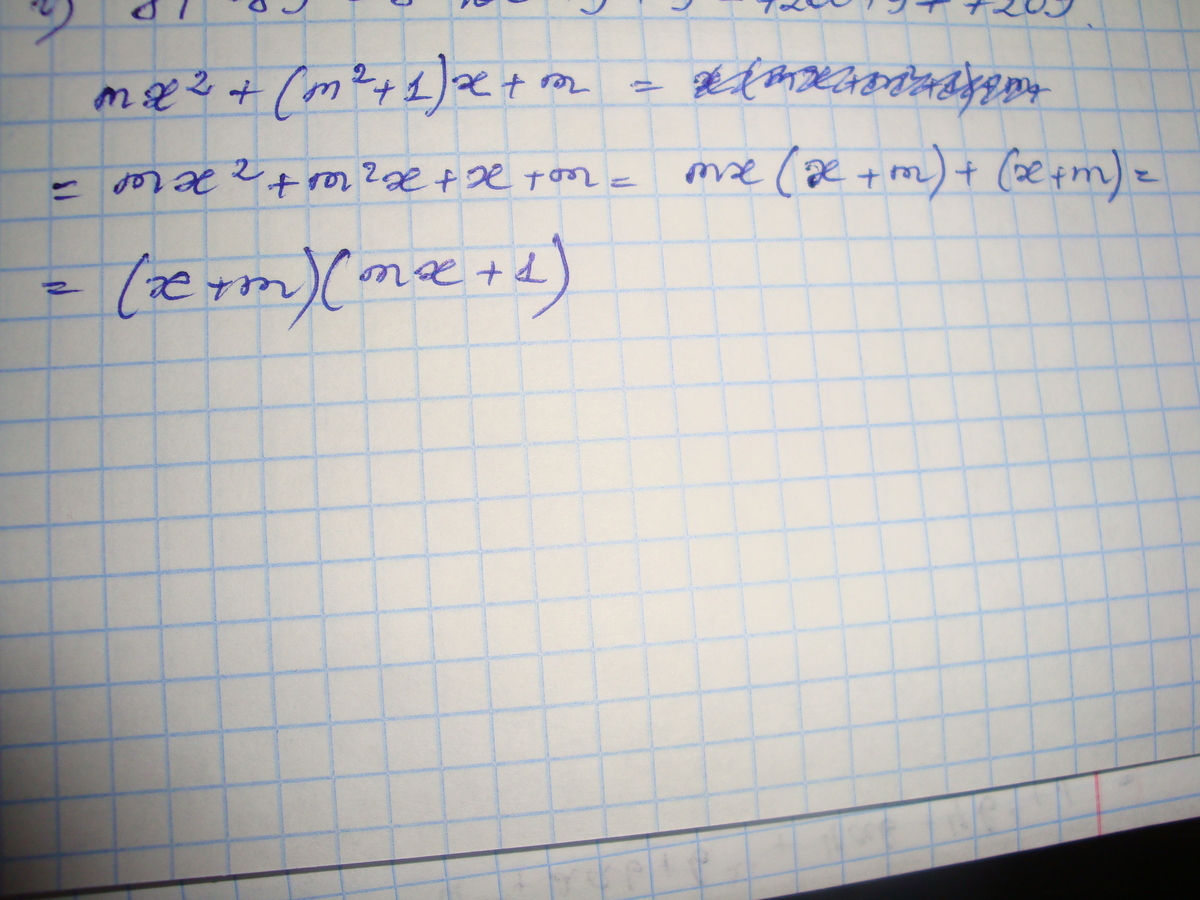 mx² + (m²+1)x + m =
= mx² + m²x + x + m = mx (x + m) + (x+m) =
= (x+m)(mx+1)